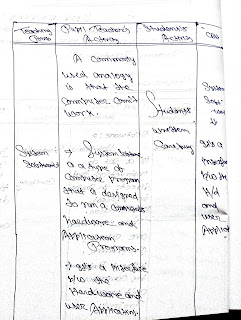 Teaching Point
Pupil Teacher's Activity
Student's Activity
A commonly
used analogy
is that the
Computer can't
work.
Students
written
Carefully
System
Software
→ System Software
is a type of
Computer program
that is designed
to run a Computer's
hardware and
Application
Programs.
→ It's a Interface
b/w the
Hardware and
User Application.
System
It's a
Interface
b/w the
H/d
and
User
Applicat